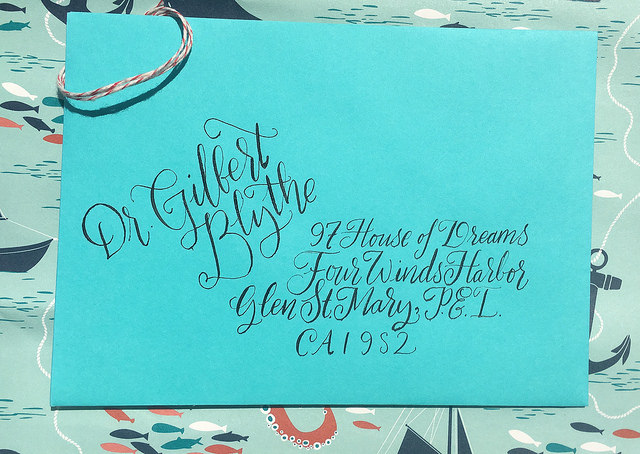 Dr. Gilbert
Blythe
97 House of Dreams
Four Winds Harbor
Glen St. Mary, P.E.I.
CA1 9S2